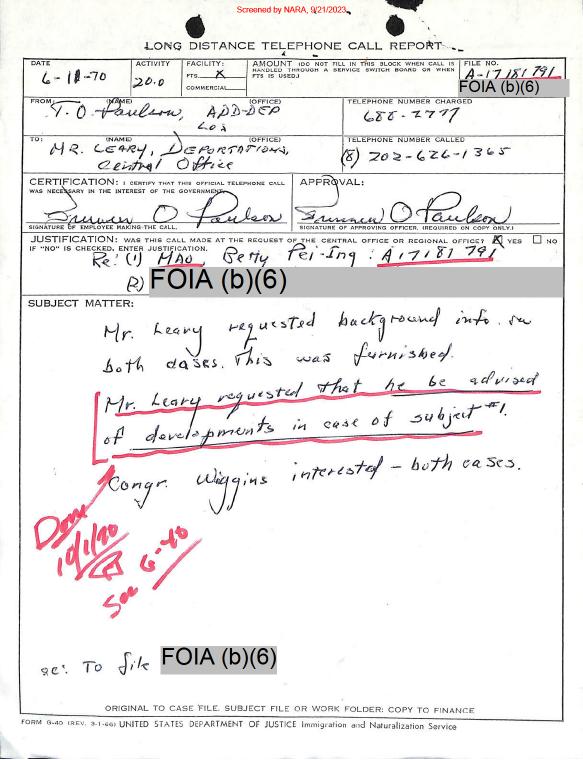 Screened by NARA, 9/21/2023
LONG DISTANCE TELEPHONE CALL REPORT
DATE
6-11-70
ACTIVITY
20.0
FACILITY:
FTS X
COMMERCIAL
AMOUNT (DO NOT FILL IN THIS BLOCK WHEN CALL IS HANDLED THROUGH A SERVICE SWITCH BOARD OR WHEN FTS IS USED.)
FILE NO.
A-17 181 791
FOIA (b)(6)
FROM: (NAME) (OFFICE)
T. O Paulson, ADD-DEP
LOS
TELEPHONE NUMBER CHARGED
688-2777
TO: (NAME) (OFFICE)
MR. LEARY, DEPORTATIONS,
Central Office
TELEPHONE NUMBER CALLED
(8) 202-626-1365
CERTIFICATION: I CERTIFY THAT THIS OFFICIAL TELEPHONE CALL
WAS NECESSARY IN THE INTEREST OF THE GOVERNMENT.
O Paulson
SIGNATURE OF EMPLOYEE MAKING THE CALL.
APPROVAL:
O Paulson
SIGNATURE OF APPROVING OFFICER. (REQUIRED ON COPY ONLY.)
JUSTIFICATION: WAS THIS CALL MADE AT THE REQUEST OF THE CENTRAL OFFICE OR REGIONAL OFFICE? X YES NO
IF "NO" IS CHECKED, ENTER JUSTIFICATION.
Re: (1) MAO, Betty Pei-Ing: A17 181 791
2) FOIA (b)(6)
SUBJECT MATTER:
Mr. Leary requested background info. on
both cases. This was furnished.
Mr. Leary requested that he be advised
of developments in case of subject #1.
Congr. Wiggins interested - both cases.
Done
10/1/70
See G-40
cc: To file FOIA (b)(6)
ORIGINAL TO CASE FILE. SUBJECT FILE OR WORK FOLDER: COPY TO FINANCE
FORM G-40 (REV. 3-1-66) UNITED STATES DEPARTMENT OF JUSTICE Immigration and Naturalization Service